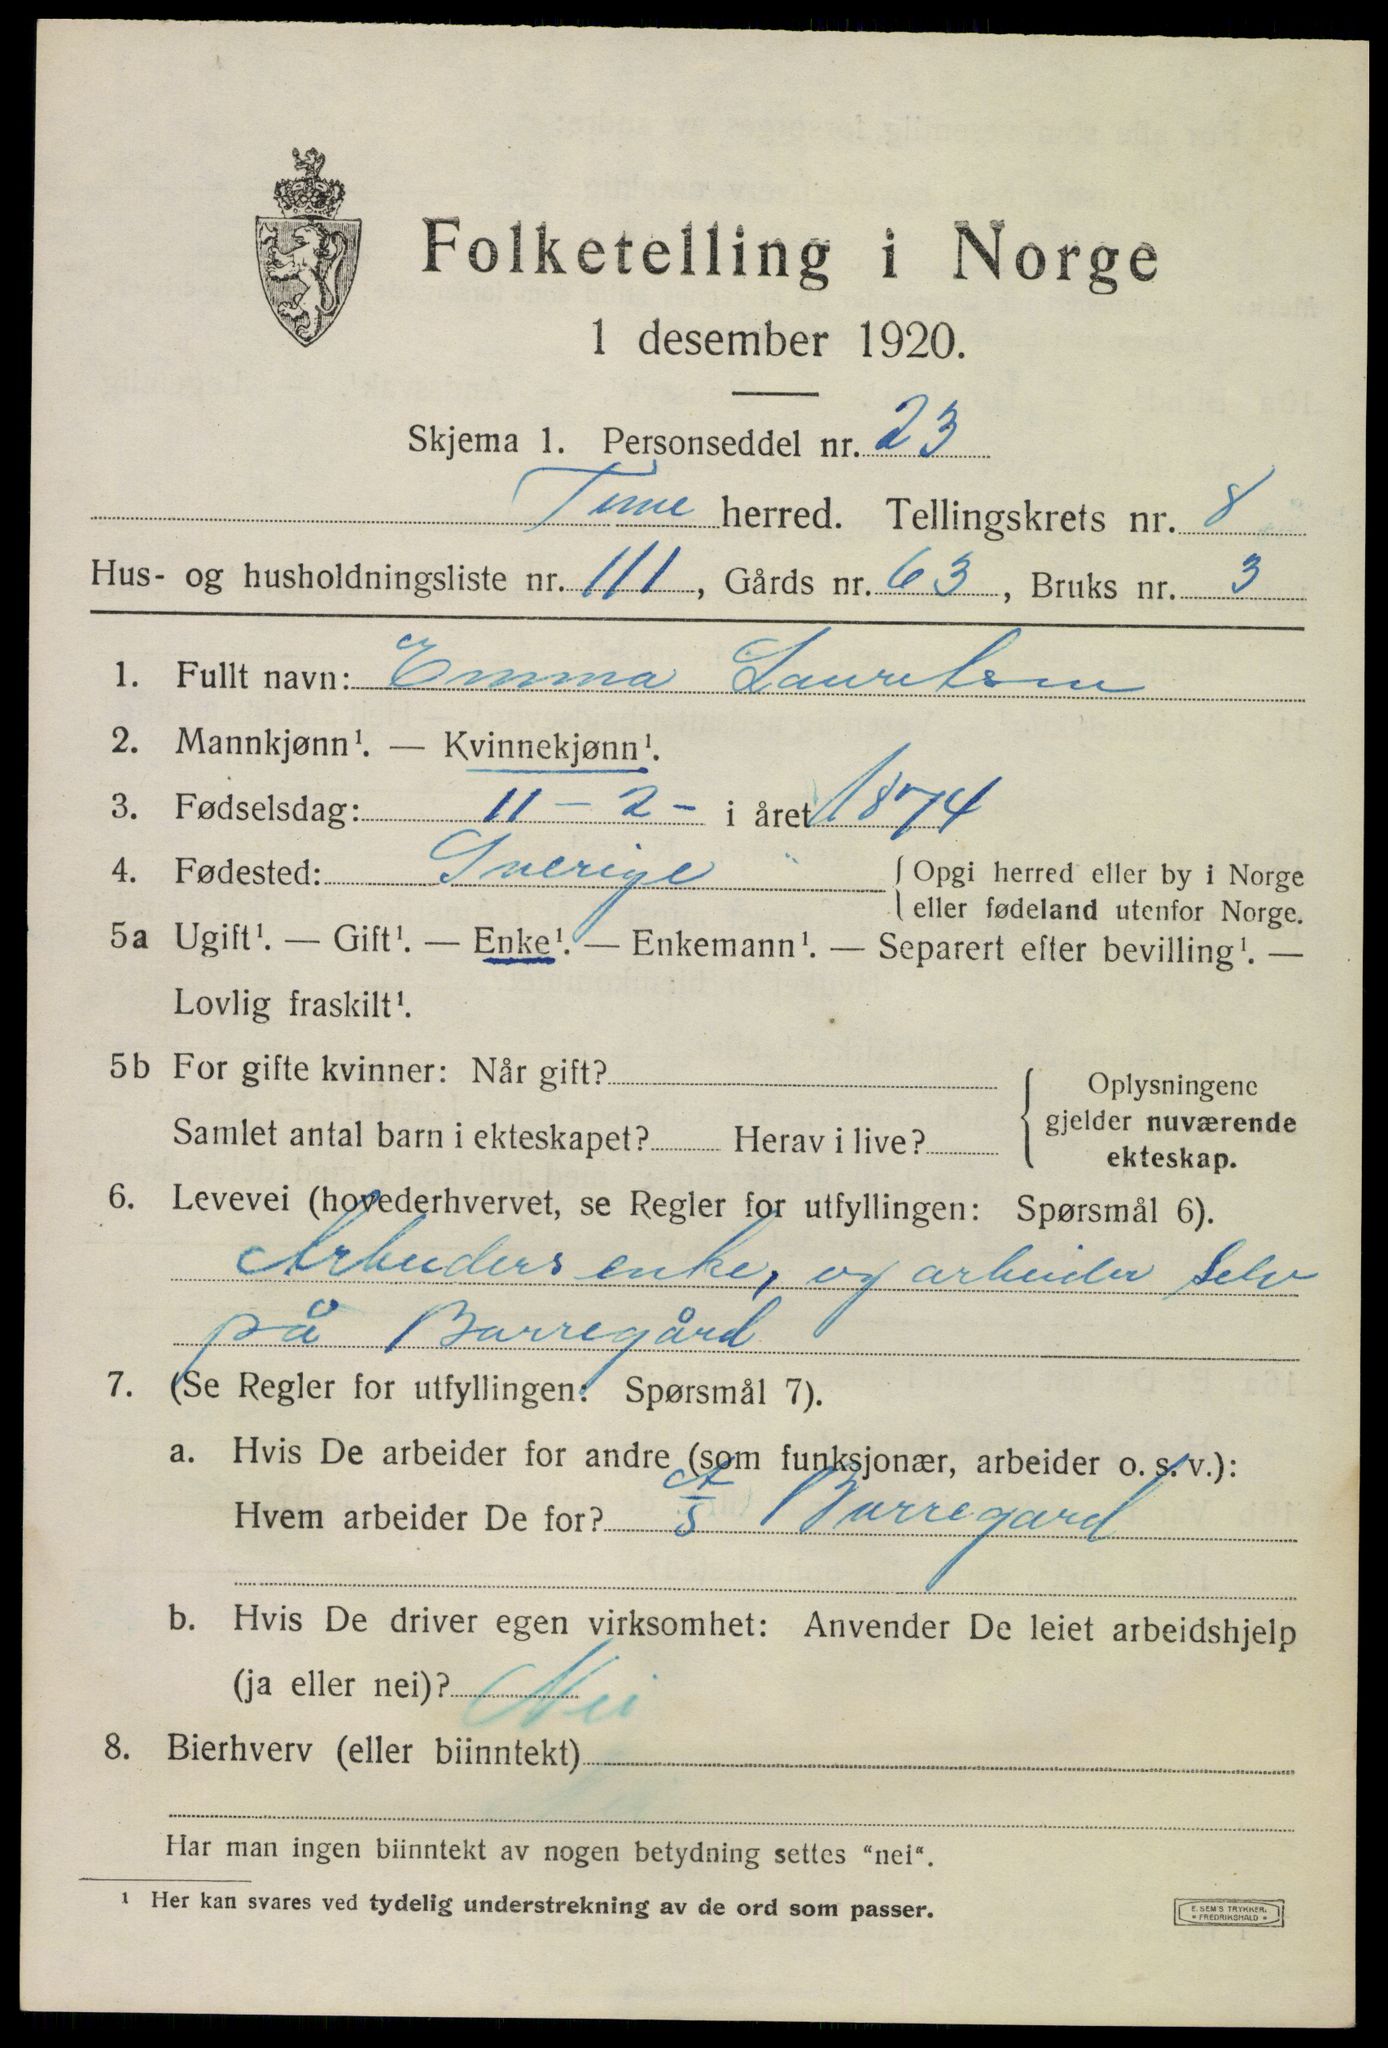 Folketelling i Norge
1 desember 1920.
Skjema 1. Personseddel nr. 23
Tune herred. Tellingskrets nr. 8
Hus- og husholdningsliste nr. 111, Gårds nr. 63, Bruks nr. 3
1. Fullt navn: Emma Lauritsen
2. Mannkjønn¹. — Kvinnekjønn¹.
3. Fødselsdag: 11 - 2 - i året 1874
4. Fødested: Sverige { Opgi herred eller by i Norge
eller fødeland utenfor Norge.
5a Ugift¹. — Gift¹. — Enke¹. — Enkemann¹. — Separert efter bevilling¹. —
Lovlig fraskilt¹.
5b For gifte kvinner: Når gift?
Samlet antal barn i ekteskapet? Herav i live?
{ Oplysningene
gjelder nuværende
ekteskap.
6. Levevei (hovederhvervet, se Regler for utfyllingen: Spørsmål 6).
Arbeiders enke, og arbeider selv
på Borregård
7. (Se Regler for utfyllingen: Spørsmål 7).
a. Hvis De arbeider for andre (som funksjonær, arbeider o. s. v.):
Hvem arbeider De for? A/S Borregard
b. Hvis De driver egen virksomhet: Anvender De leiet arbeidshjelp
(ja eller nei)? Nei
8. Bierhverv (eller biinntekt)
Har man ingen biinntekt av nogen betydning settes "nei".
¹ Her kan svares ved tydelig understrekning av de ord som passer.
E. SEM'S TRYKKERI
* FREDRIKSHALD *